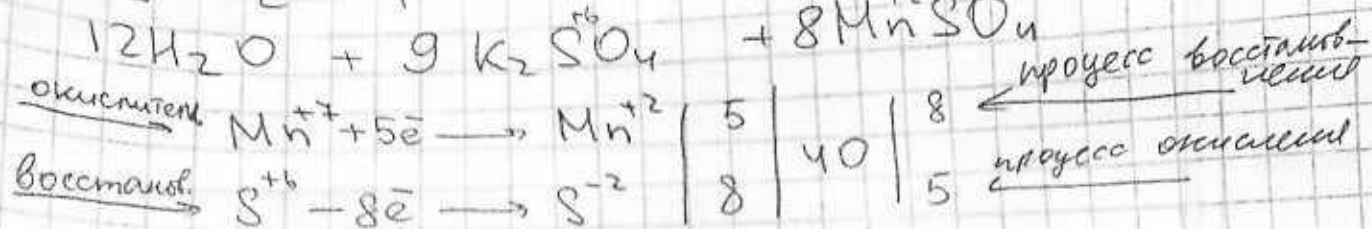 12H₂O + 9 K₂S⁺⁶O₄ + 8MnSO₄
окислитель Mn⁺⁷+5ē → Mn⁺² | 5 | 40 | 8 ← процесс восстанов-
ления
восстанов. S⁺⁶ -8ē → S⁻² | 8 | | 5 ← процесс окисления